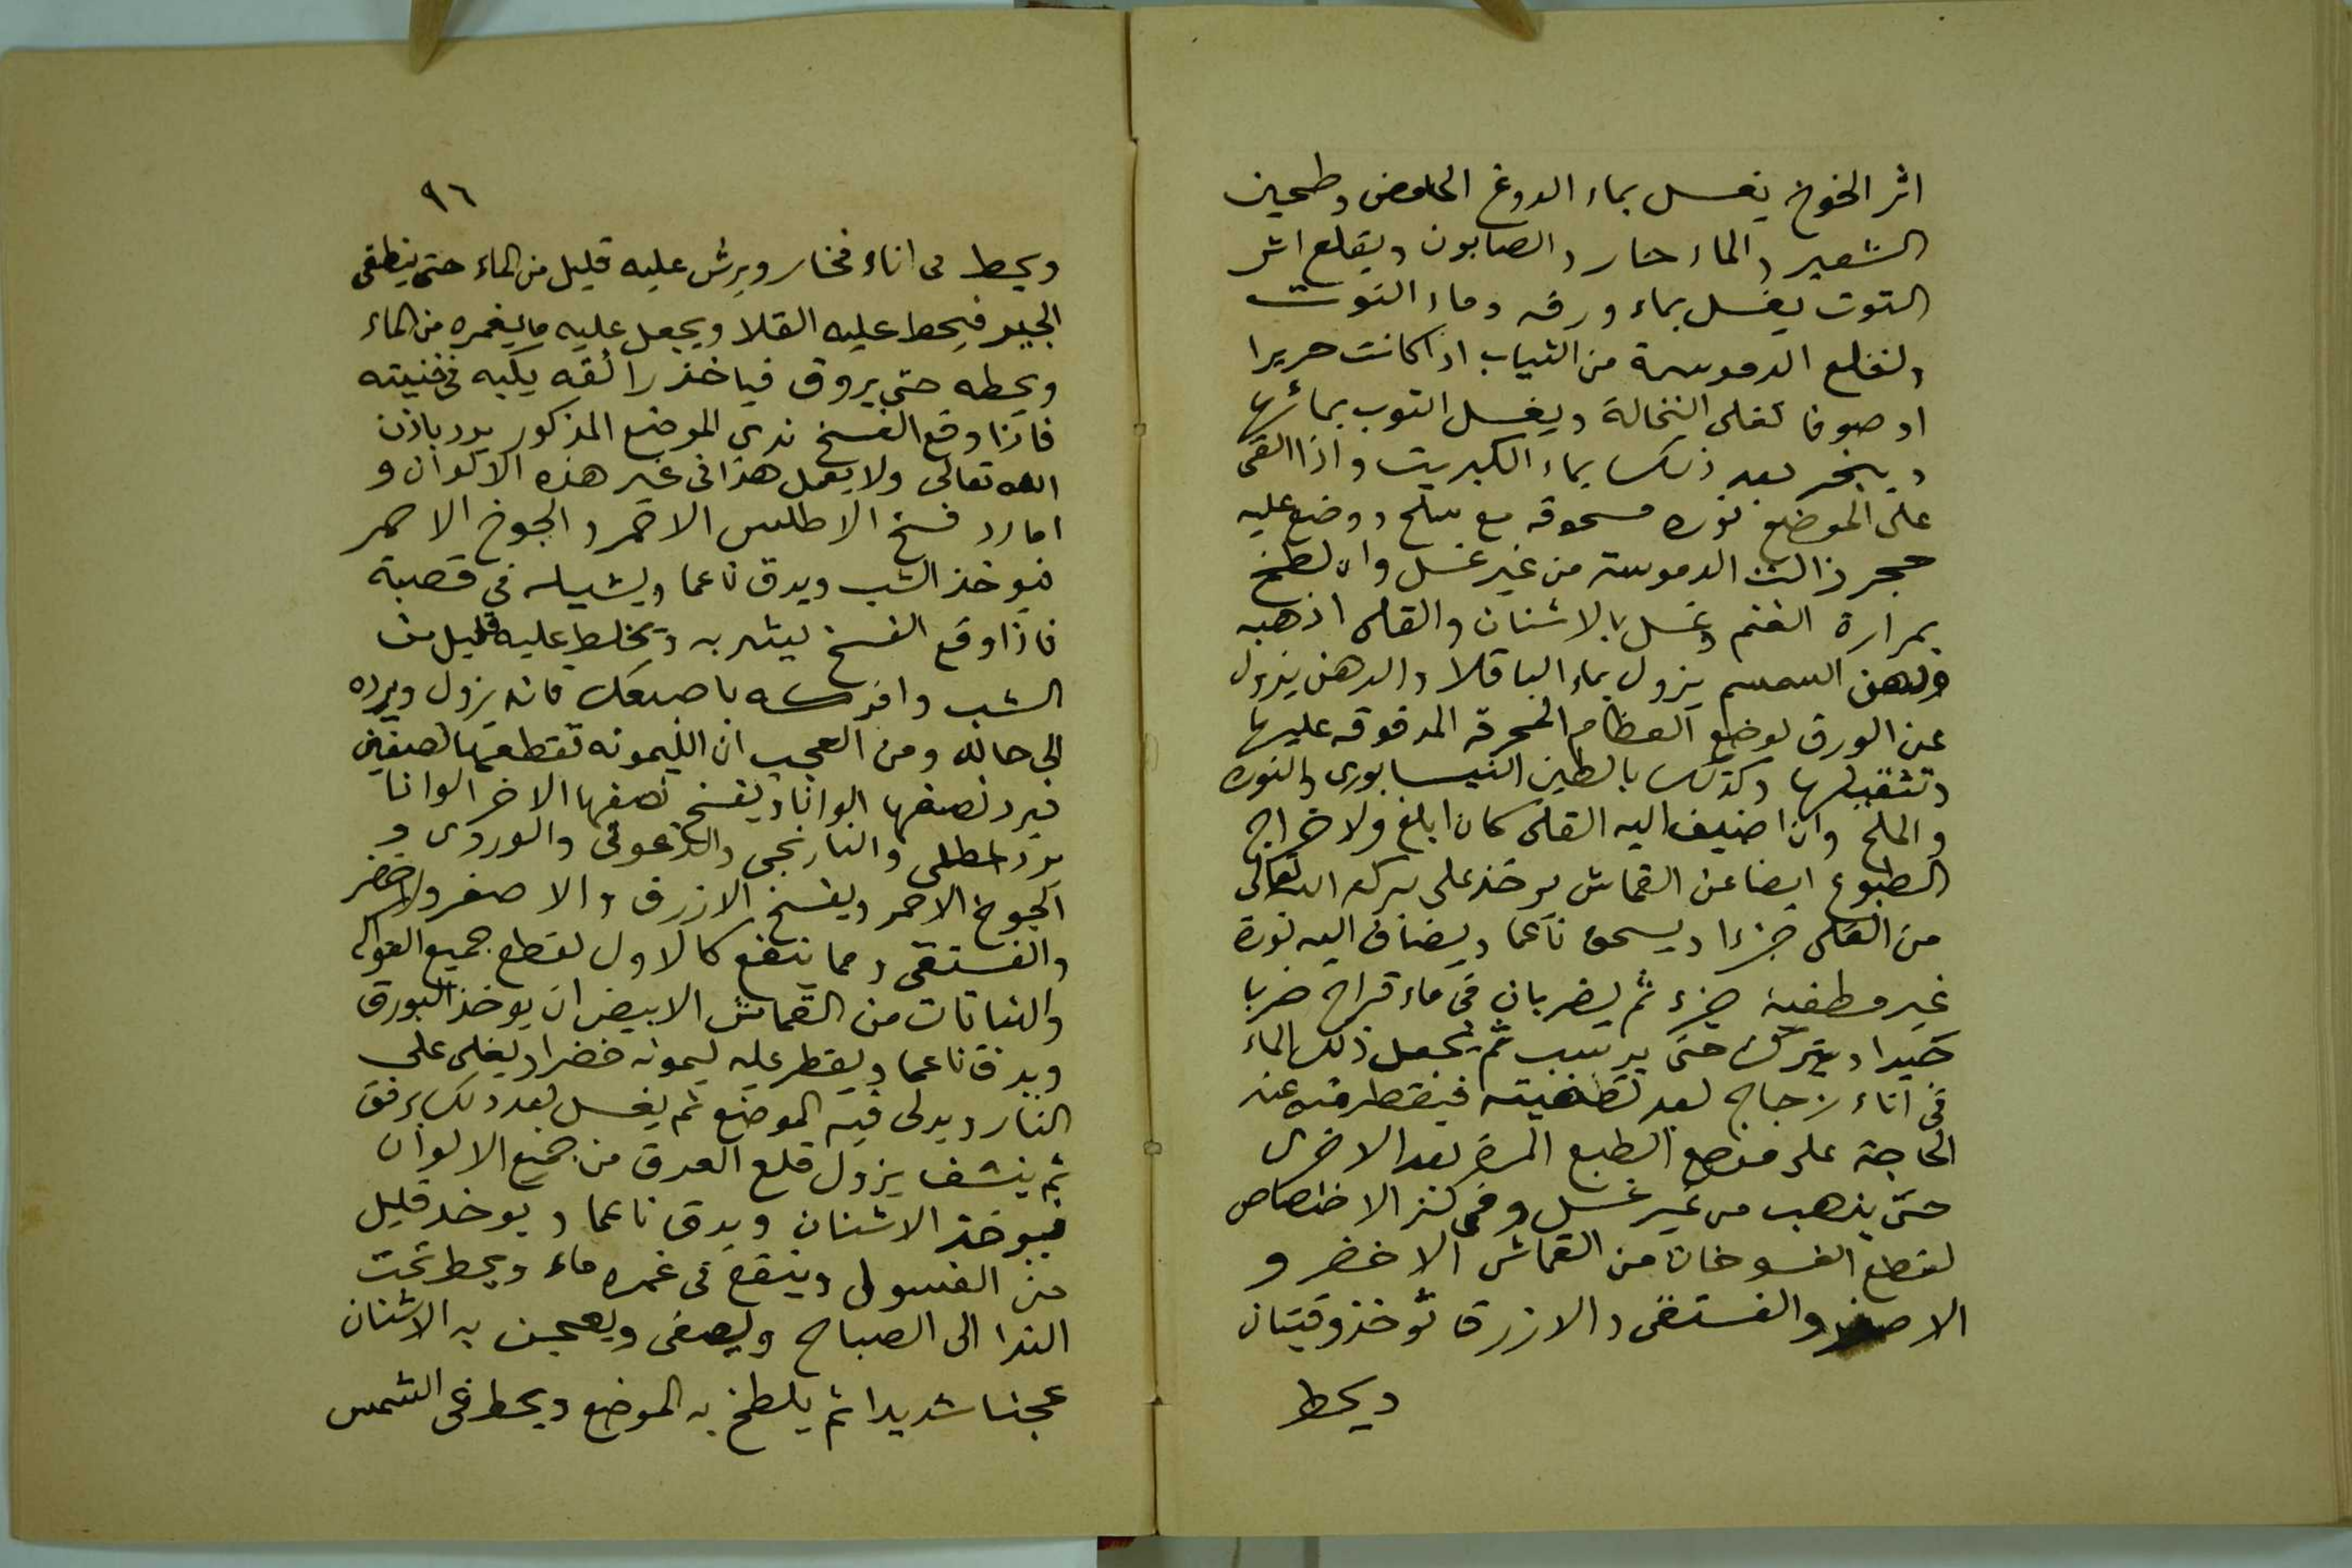 اثر الخوخ يغسل بماء الدوغ الحامض وطحين
الشعير والماء حار والصابون ويقلع اثر
التوت يغسل بماء ورقه وماء التوت
ولقلع الدموسة من الثياب اذا كانت حريرا
او صوفا تغلى النخالة ويغسل التوب بمائها
ويبخر بعد ذلك بماء الكبريت واذا القى
على الموضع نوره مسحوقه مع ملح ووضع عليه
حجر زالت الدموسة من غير غسل وان لطخ
بمرارة الغنم وغسل بالاشنان والقلى اذهبه
ودهن السمسم يزول بماء الباقلا والدهن يزول
عن الورق بوضع العظام المحرقه المدقوقه عليها
وتثقيلها وكذلك بالطين النيسابورى والنوره
والملح وان اضيف اليه القلى كان ابلغ ولاخراج
الطبوع ايضا عن القماش يوخذ على بركه الله تعالى
من القلى جزءا ويسحق ناعما ويضاف اليه نورة
غير مطفيه جزء ثم يضربان فى ماء قراح ضربا
جيدا ويترك حتى يرسب ثم يجعل ذلك الماء
فى اناء زجاج بعد تصفيته فيقطر منه عند
الحاجة على موضع الطبع المرة بعد الاخرى
حتى يذهب من غير غسل وفى كنز الاختصاص
لقطع الفسوخات من القماش الاخضر و
الاصفر والفستقى والازرق تؤخذ وقيتان
ويحط
٩٦
ويحط فى اناء فخار ويرش عليه قليل من الماء حتى ينطفى
الجير فيحط عليه القلا ويجعل عليه ما يغمره من الماء
ويحطه حتى يروق فياخذ رائقه يكبه فى قنينته
فاذا وقع الفسخ ندى الموضع المذكور يرد باذن
الله تعالى ولا يعمل هذا فى غير هذه الالوان و
اما رد فسخ الاطلس الاحمر والجوخ الاحمر
فيوخذ الشب ويدق ناعما ويشيله في قصبة
فاذا وقع الفسخ ليشربه ويخلط عليه قليل من
الشب وافركه باصبعك فانه يزول ويرده
الى حاله ومن العجب ان الليمونه تقطعها نصفين
فيرد نصفها الوانا ويفسخ نصفها الاخر الوانا
يرد والنارنجى والوردى و
الجوخ الاحمر ويفسخ الازرق والاصفر والاخضر
والفستقى ومما ينفع كالاول لقطع جميع الفواكه
والنباتات من القماش الابيض ان يوخذ البورق
ويدق ناعما ويقطر عليه ليمونه خضرا ويغلى على
النار ويدلى فيه الموضع ثم يغسل بعد ذلك برفق
ثم ينشف يزول قلع العرق من جميع الالوان
فيوخذ الاشنان ويدق ناعما ويوخذ قليل
من الغسول وينقع فى غمره ماء ويحط تحت
الندا الى الصباح ويصفى ويعجن به الاشنان
عجنا شديدا ثم يلطخ به الموضع ويحط فى الشمس